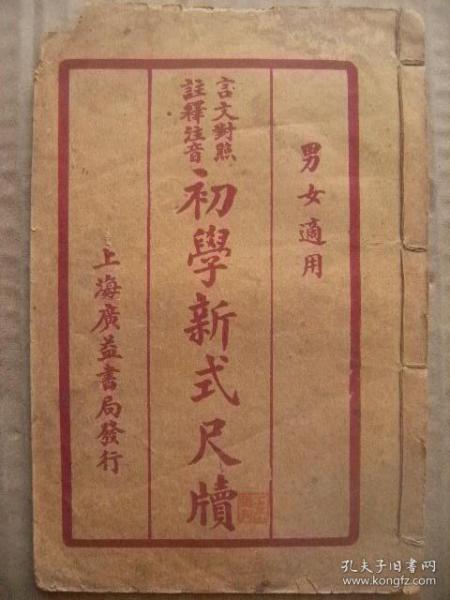 男女適用
言文對照
註釋注音
初學新式尺牘
上海廣益書局發行
孔夫子旧书网
www.kongfz.com